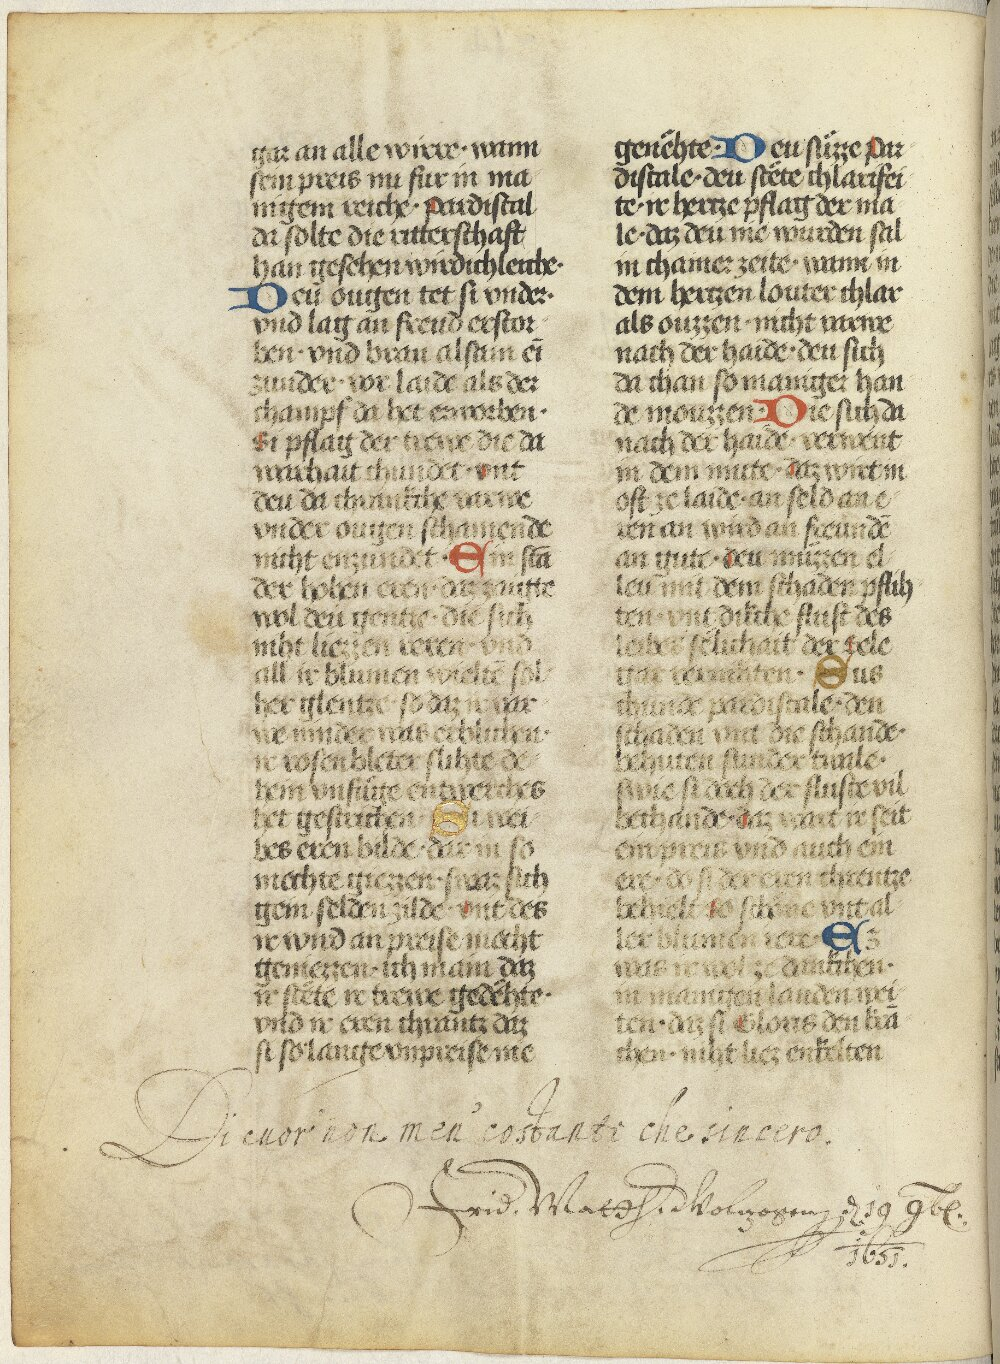 gar an alle wirre · wann
sein preis nu fur in ma
nigem reiche · pardiscal
da solte die ritterschaft
han gesehen wirdichleiche ·
Deu ougen tet si vnder ·
vnd lag an freud erstor
ben · vnd bran alsam ein
zunder · wr laide als der
champf da het erworben ·
Si pflag der trewe die da
warhait chundet · vnt
deu da chranchhe varwe
vnder ougen schamende
niht enzundet · Ein stā
der hohen eren · daz zaugte
wol deu gentze · die sich
niht liezzen reren · vnd
all ir blumen wielte sol
her glentze · so daz
we minder was erbluhen ·
ir rosen bleter slihte de
hein vnfuge entwerches
het gestrichen · Si wei
bes eren bilde · dar in so
mechte giezzen · swaz sich
gein selden zilde · vnt des
ir wird an preise mocht
geniezzen · ich main daz
ir stete ir trewe gedehte ·
vnd ir eren chrantz daz
si so lange vnpreise nie
genehte · Deu suzze par
discale · deu stete chlarisei
te · ir hertze pflag der ma
le · daz deu nie wurden sal
in chainer zeite · wann in
dem hertzen louter chlar
als ouzzen · niht varwe
nach der haide · deu sich
da chan so maniger han
de mouzzen · Die sich da
nach der haide · verwent
in dem mute · daz wirt in
oft ze laide · an seld an e
ren an wird an freunde
an gute · deu muzzen el
leu mit dem schaden pflih
ten · vnt dikche flust des
leibes selichait der sele
gar vernihten · Sus
chunde pardiscale · den
schaden vnt die schande ·
behuten sunder twale ·
swie si doch der fluste vil
bechande · daz wart ir seit
ein preis vnd auch ein
ere · do si der eren chrentze
behielt so schone vnt al
ler blumen rere · Ez
was ir wol ze danchen ·
in manigen landen wei
ten · daz si Gloris den kra
chen · niht liez enkelten
Di cuor' non men' costante che sincero.
Frid. Matth. d. 19 9bl.
1651.